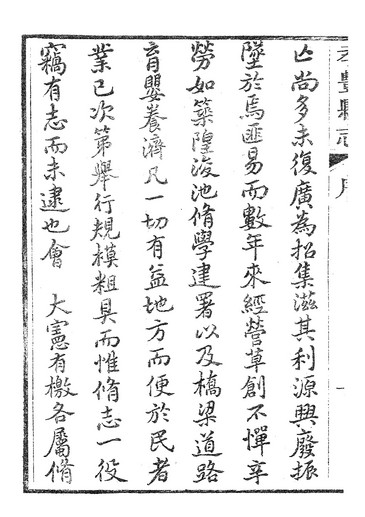 孝豐縣志 序 一
亾尚多未復廣為招集滋其利源興廢振
墜於焉匪易而數年來經營草創不憚辛
勞如築隍浚池脩學建署以及橋梁道路
育嬰養濟凡一切有益地方而便於民者
業已次第舉行規模粗具而惟脩志一役
竊有志而未逮也會 大憲有檄各屬脩